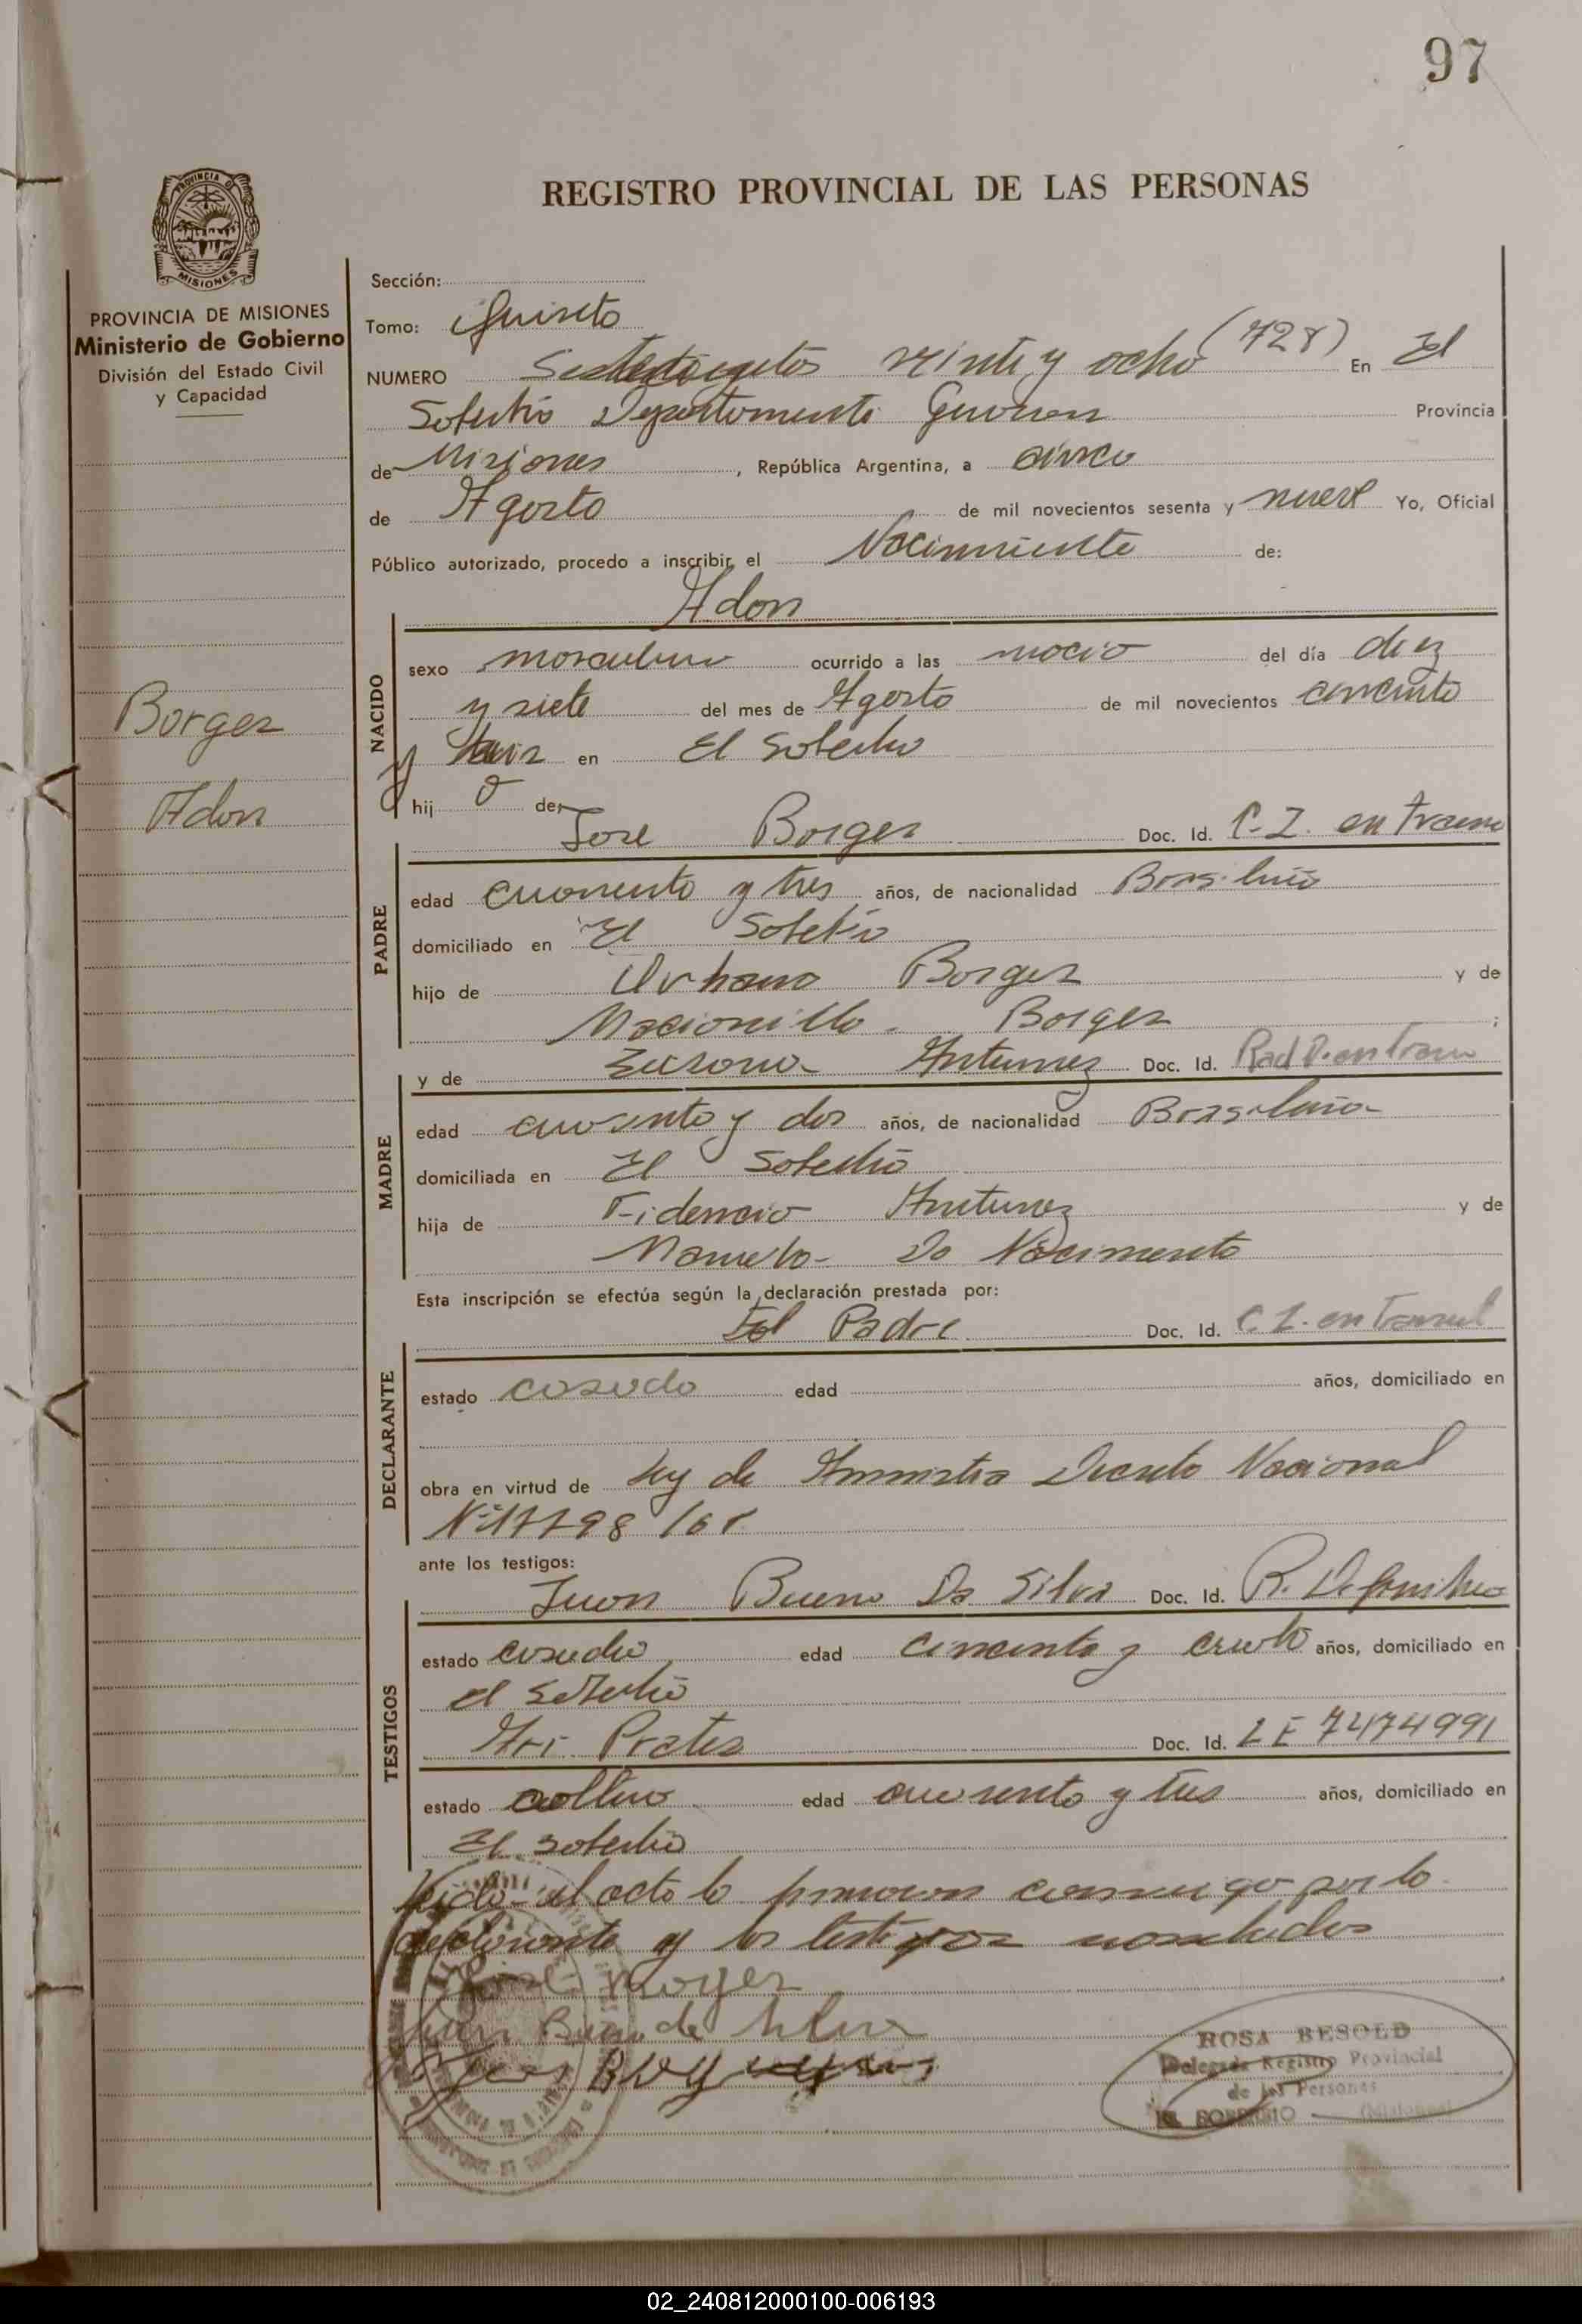 97
REGISTRO PROVINCIAL DE LAS PERSONAS
PROVINCIA DE
MISIONES
PROVINCIA DE MISIONES
Ministerio de Gobierno
División del Estado Civil
y Capacidad
Borges
Adon
Sección:
Tomo: Quinto
NUMERO Setecientos veinte y ocho (728) En El
Soberbio Departamento Guarani Provincia
de Misiones, República Argentina, a cinco
de Agosto de mil novecientos sesenta y nueve Yo, Oficial
Público autorizado, procedo a inscribir el Nacimiento de:
Adon
NACIDO
sexo masculino ocurrido a las del día diez
y siete del mes de Agosto de mil novecientos cincuenta
y seis en El Soberbio
hij o de
Jose Borges Doc. Id. C.I. en tramite
PADRE
edad cuarenta y tres años, de nacionalidad Brasileño
domiciliado en El Soberbio
hijo de Urbano Borges y de
Borges ;
y de Antunez Doc. Id. en tram
MADRE
edad cuarenta y dos años, de nacionalidad Brasileña
domiciliada en El Soberbio
hija de Fidencio Antunez y de
Do Nacimento
Esta inscripción se efectúa según la declaración prestada por:
El Padre Doc. Id. C.I. en
DECLARANTE
estado casado edad años, domiciliado en
obra en virtud de Ley de Amnistia Decreto Nacional
Nº
ante los testigos:
Juan Bueno Da Silva Doc. Id.
TESTIGOS
estado casado edad cincuenta y años, domiciliado en
el Soberbio
Ari Prates Doc. Id. LE 7474991
estado soltero edad cuarenta y tres años, domiciliado en
El Soberbio
Leido el acto lo conmigo por lo
declarante y los testigos nombrados
Borges
Juan Bueno da Silva
ROSA BESOLD
Delegada Registro Provincial
de las Personas
EL SOBERBIO (Misiones)
02_240812000100-006193